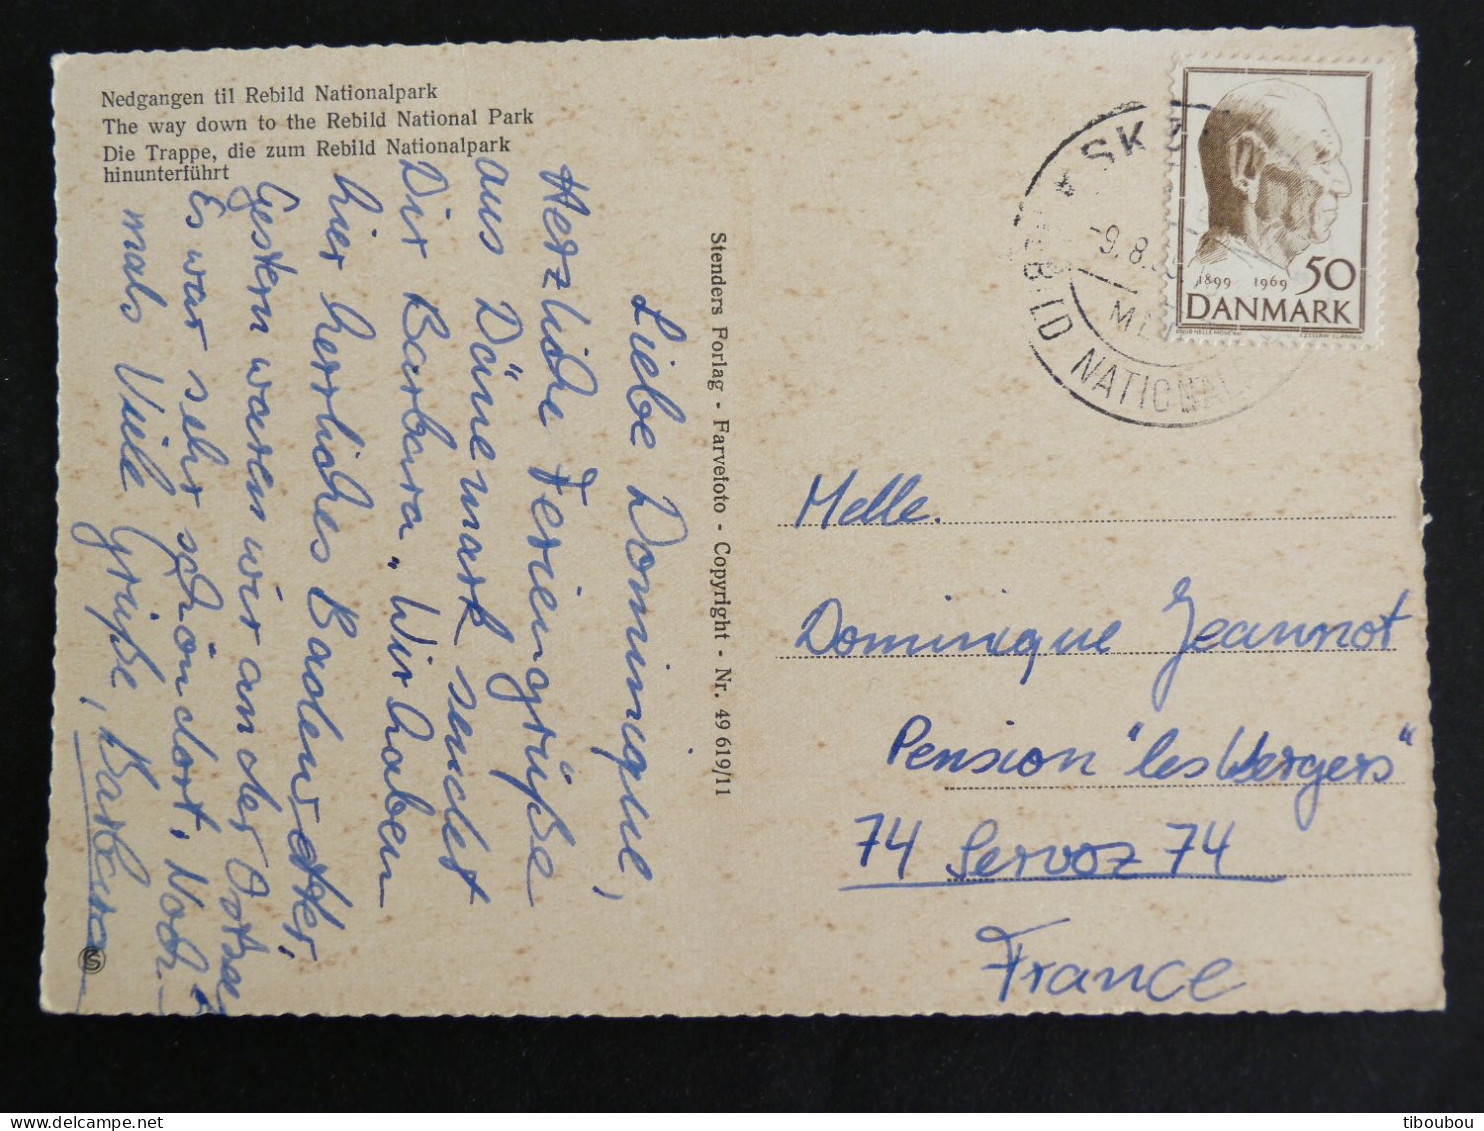 Nedgangen til Rebild Nationalpark
The way down to the Rebild National Park
Die Trappe, die zum Rebild Nationalpark
hinunterführt
Liebe Dominique,
Herzliche Feriengrüße
aus Dänemark sendet
Dir Barbara. Wir haben
hier herrliches Badewetter.
Gestern waren wir an der Ostsee
Es war sehr schön dort. Noch-
mals Viele Grüße, Barbara
Stenders Forlag - Farvefoto - Copyright - Nr. 49 619/11
SK
-9.8.
NATIONAL
1899 1969 50
DANMARK
Melle.
Dominique Jeannot
Pension "les Vergers"
74 Servoz 74
France
tiboubou | delcampe.net